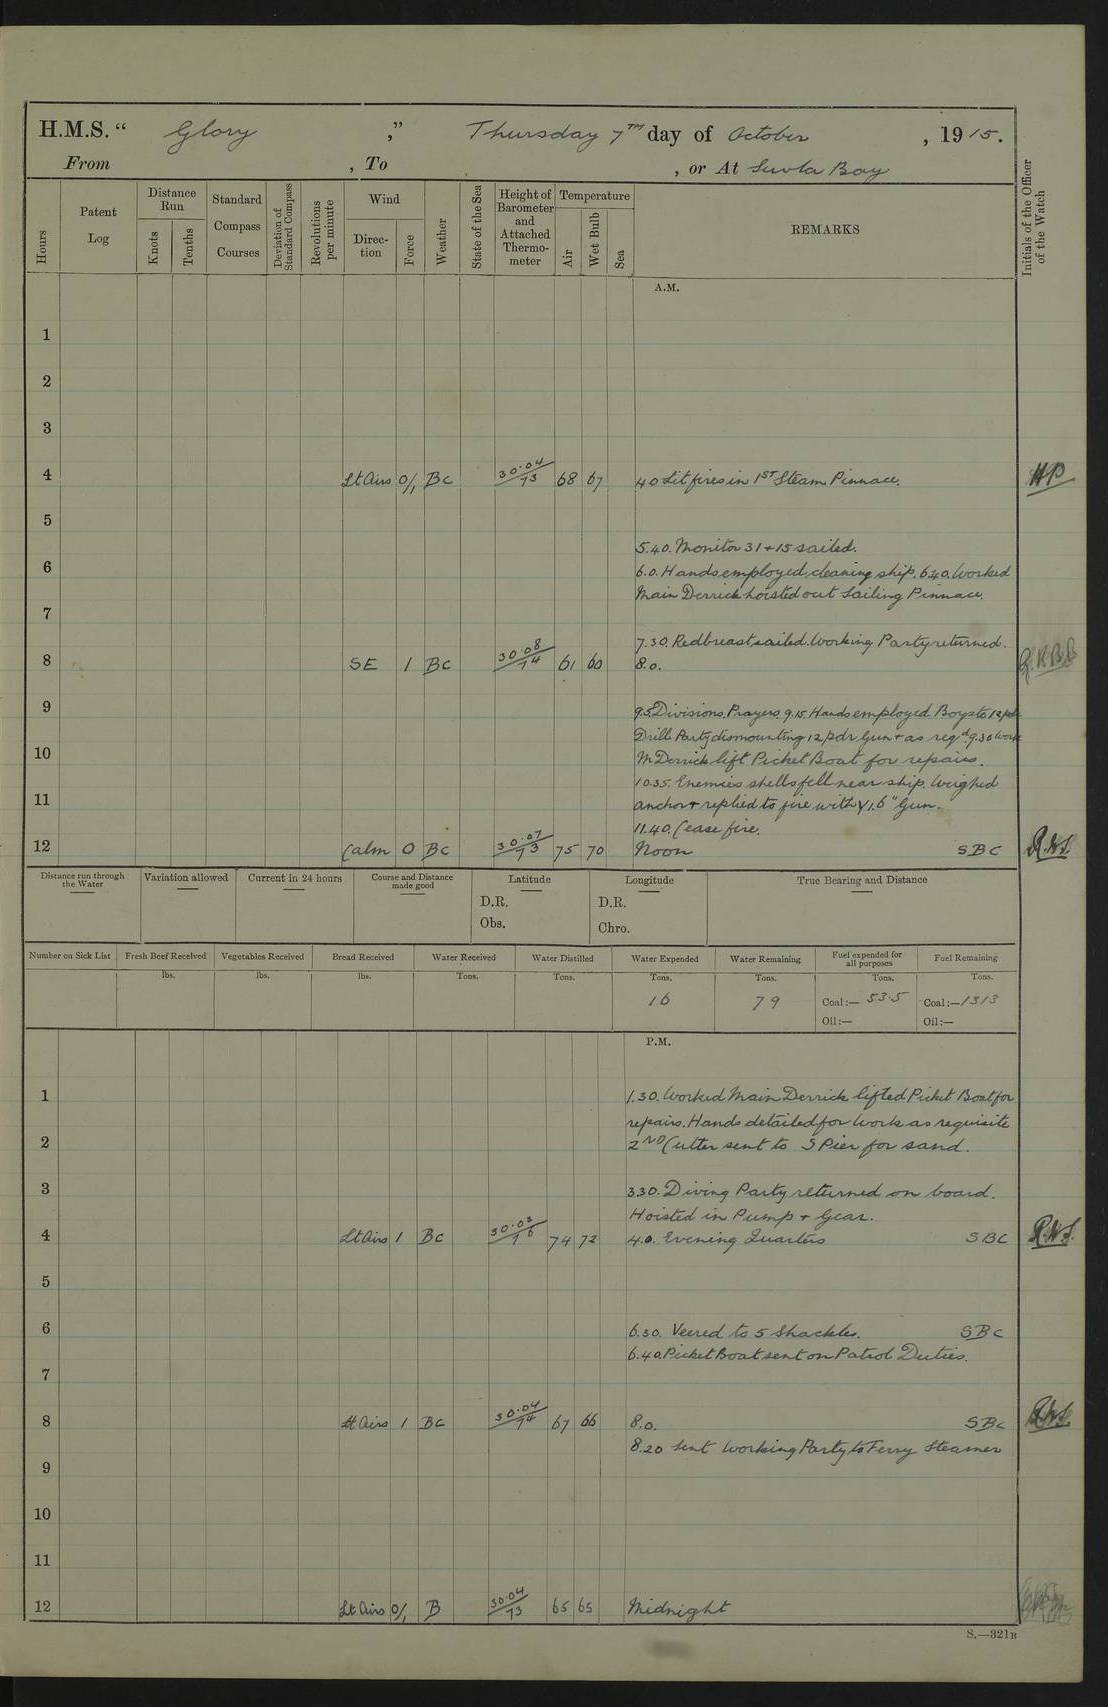 H.M.S. “ Glory ,” Thursday 7TH day of October , 1915.
From , To , or At Suvla Bay
Hours
Patent Log
Distance Run
Knots
Tenths
Standard Compass Courses
Deviation of Standard Compass
Revolutions per minute
Wind
Direction
Force
Weather
State of the Sea
Height of Barometer and Attached Thermometer
Temperature
Air
Wet Bulb
Sea
REMARKS
Initials of the Officer of the Watch
A.M.
1
2
3
4 Lt Airs 0/1 Bc 30.04/73 68 67 4.0 Lit fires in 1ST Steam Pinnace. HP
5
5.40. Monitor 31 + 15 sailed.
6 6.0. Hands employed cleaning ship. 6.40. Worked
Main Derrick hoisted out Sailing Pinnace.
7
7.30. Redbreast sailed. Working Party returned.
8 SE 1 Bc 30.08/74 61 60 8.0.
9 9.5 Divisions. Prayers. 9.15. Hands employed Boys to 12pdr
Drill Party dismounting 12pdr Gun + as reqd 9.30 Work
10 M Derrick lift Picket Boat for repairs.
10.35. Enemies shells fell near ship. Weighed
11 anchor + replied to fire with Y1. 6" Gun.
11.40. Cease fire.
12 Calm 0 Bc 30.07/73 75 70 Noon SBC R.W.S.
Distance run through the Water
Variation allowed
Current in 24 hours
Course and Distance made good
Latitude
D.R.
Obs.
Longitude
D.R.
Chro.
True Bearing and Distance
Number on Sick List
Fresh Beef Received
lbs.
Vegetables Received
lbs.
Bread Received
lbs.
Water Received
Tons.
Water Distilled
Tons.
Water Expended
Tons.
16
Water Remaining
Tons.
79
Fuel expended for all purposes
Tons.
Coal:— 53.5
Oil:—
Fuel Remaining
Tons.
Coal:— 1313
Oil:—
P.M.
1 1.30. Worked Main Derrick lifted Picket Boat for
repairs. Hands detailed for work as requisite
2 2ND Cutter sent to S Pier for sand.
3 3.30. Diving Party returned on board.
Hoisted in Pump + Gear.
4 Lt Airs 1 Bc 30.03/76 74 72 4.0. Evening Quarters SBC R.W.S.
5
6 6.30. Veered to 5 Shackles. SBC
6.40. Picket Boat sent on Patrol Duties.
7
8 Lt Airs 1 Bc 30.04/74 67 66 8.0. SBC R.W.S.
8.20 Sent Working Party to Ferry Steamer
9
10
11
12 Lt Airs 0/1 B 30.04/73 65 65 Midnight
S.—321B